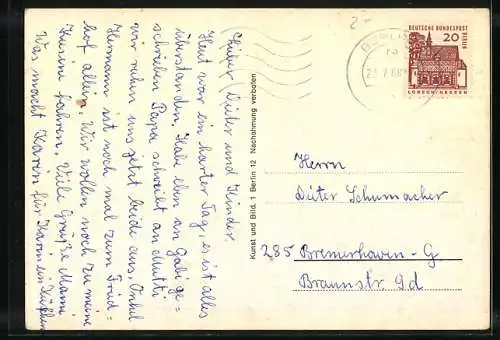 Lieber Dieter und Kinder.
Heut war ein harter Tag, es ist alles
überstanden. Habe eben an Gabi ge-
schrieben Papa schreibt an Mutti
wir ruhen uns jetzt beide aus. Onkel
Hermann ist noch mal zum Fried-
hof allein. Wir wollen noch zu meine
fahren. Viele Grüße Mami
Was macht Karin für Karin ein Küßchen
Kunst und Bild, 1 Berlin 12 Nachahmung verboten
2-
BERLIN
23.7.68
DEUTSCHE BUNDESPOST
BERLIN
20
LORSCH/HESSEN
Herrn
Dieter Schumacher
285 Bremerhaven-G
Braunstr. 9d